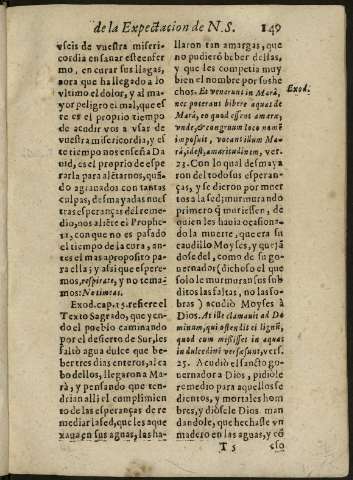 de la Expectacion de N.S. 149
vseis de vuestra miseri-
cordia en sanar este enfer
mo, en curar sus llagas,
aora que ha llegado a lo
vltimo el dolor, y al ma-
yor peligro el mal, que es
te es el proprio tiempo
de acudir vos a vsar de
vuestra misericordia, y es
te tiempo nos enseña Da
uid, es el proprio de espe
rarla para alētarnos, quā
do agrauados con tantas
culpas, desmayadas nues
tras esperanças del reme-
dio, nos aliēte el Prophe-
ta, con que no es pasado
el tiempo de la cura, an-
tes el mas aproposito pa
ra ella; y assi que espere-
mos, respirate, y no tema-
mos: No timeas.
Exod. cap. 15. refiere el
Texto Sagrado, que yen-
do el pueblo caminando
por el desierto de Sur, les
faltò agua dulce que be-
ber tres dias enteros, al ca
bo dellos, llegaron a Ma-
rà, y pensando que ten-
drian alli el complimien
to de las esperanças de re
mediar la sed, les que aque
xaua en sus aguas, las ha-
llaron tan amargas, que
no pudierō beber dellas,
y que les competia muy
bien el nombre por sus he
chos. Et venerunt in Marà,
nec poterant bibere aquas de
Marà, eo quod essent amaræ,
vnde, & congruum loco nomē
imposuit, vocans illum Ma-
rà, id est, amaritudinem, ver.
23. Con lo qual desmaya
ron del todo sus esperan-
ças, y se dieron por muer
tos a la sed; murmurando
primero q̄ muriessen, de
quien les hauia ocasiona-
do la muerte, que era su
caudillo Moyses, y quejā
dose del, como de su go-
uernador (dichoso el que
solo le murmuran sus sub
ditos las faltas, no las so-
bras) acudiò Moyses à
Dios. At ille clamauit ad Do
minum, qui ostendit ei lignū,
quod cum misisset in aquas
in dulcedinē versæ sunt, vers.
25. Acudiò el sancto go-
uernador a Dios, pidiòle
remedio para aquellos se
dientos, y mortales hom
bres, y diòsele Dios man
dandole, que hechasse vn
madero en las aguas, y cō
Exod.
T 5